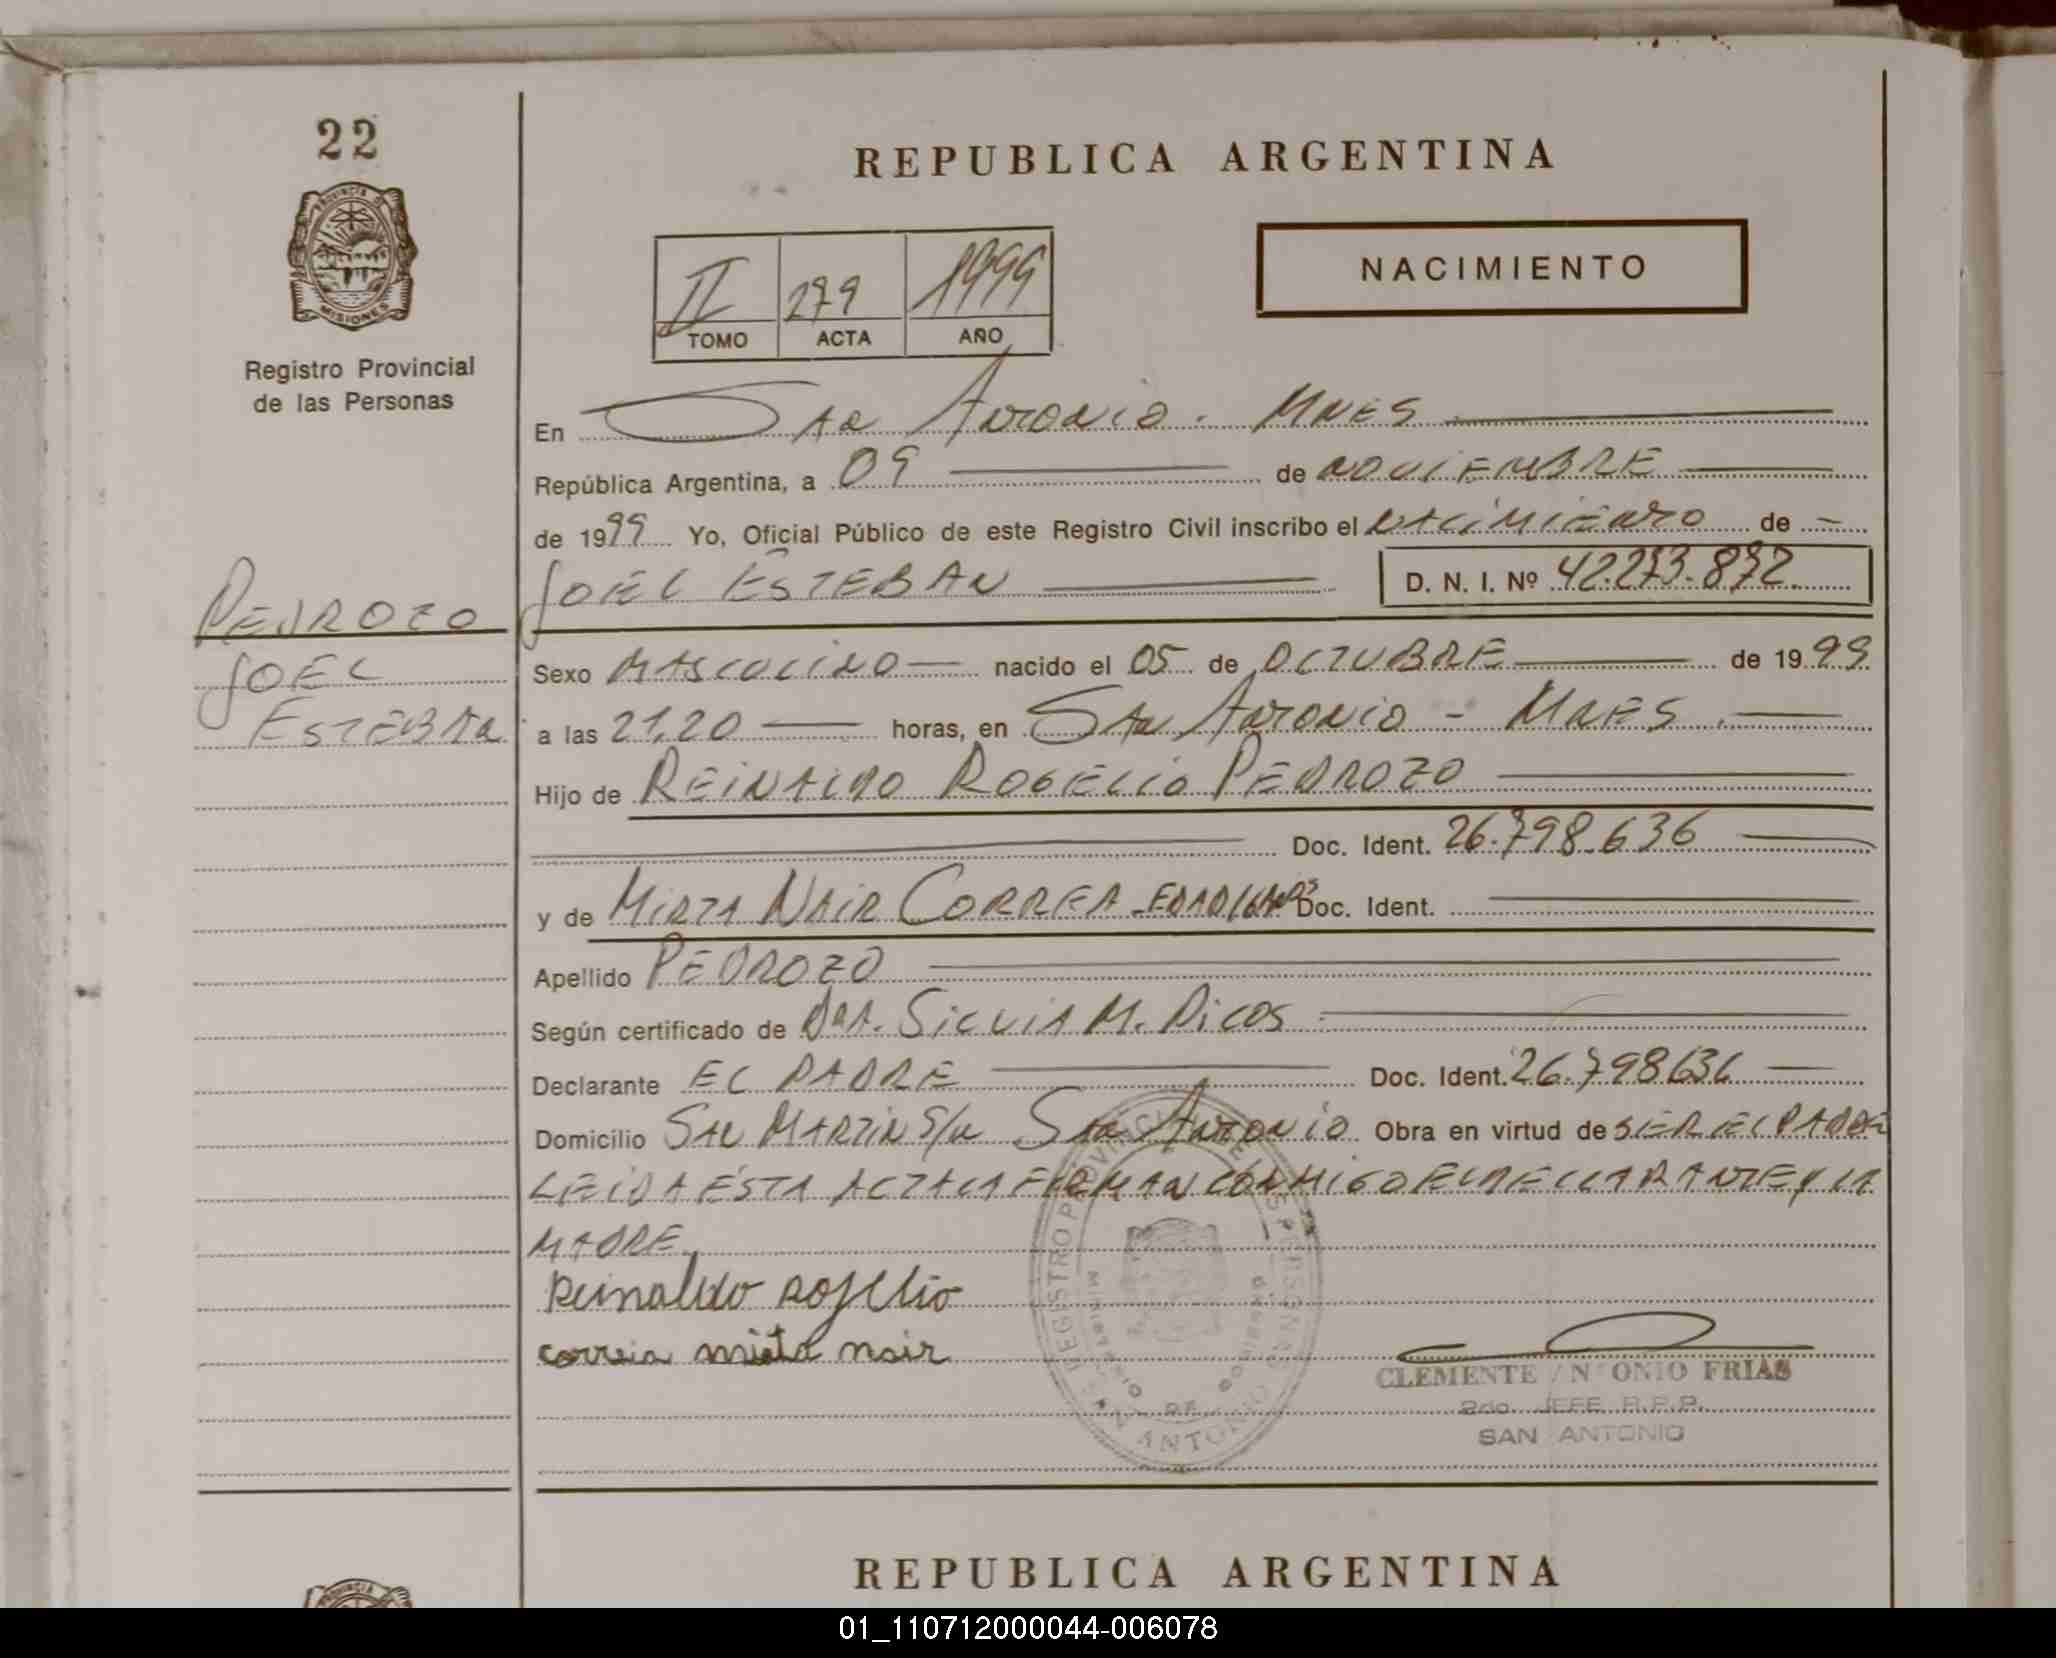 22
REPUBLICA ARGENTINA
PROVINCIA DE
MISIONES
II 279 1999
TOMO ACTA AÑO
NACIMIENTO
Registro Provincial
de las Personas
En San Antonio - Mnes
República Argentina, a 09 de NOVIEMBRE
de 1999 Yo, Oficial Público de este Registro Civil inscribo el NACIMIENTO de -
PEDROZO
JOEL ESTEBAN D. N. I. Nº 42.273.872
JOEL
ESTEBAN
Sexo MASCULINO nacido el 05 de OCTUBRE de 1999
a las 21,20 horas, en San Antonio - Mnes
Hijo de REINALDO ROGELIO PEDROZO
Doc. Ident. 26.798.636
y de MIRTA NAIR CORREA - EDAD 16 AÑOS Doc. Ident.
Apellido PEDROZO
Según certificado de DRA. SILVIA M. PICOS
Declarante EL PADRE Doc. Ident. 26.798636
Domicilio SAN MARTIN S/N San Antonio Obra en virtud de SER EL PADRE
LEIDA ESTA ACTA LA FIRMAN CONMIGO EL DECLARANTE Y LA
MADRE
Reinaldo Rogelio
correia mirta nair
REGISTRO PROVINCIAL DE LAS PERSONAS
MINISTERIO DE GOBIERNO
SAN ANTONIO
CLEMENTE ANTONIO FRIAS
2do. JEFE R.P.P.
SAN ANTONIO
REPUBLICA ARGENTINA
PROVINCIA
01_110712000044-006078